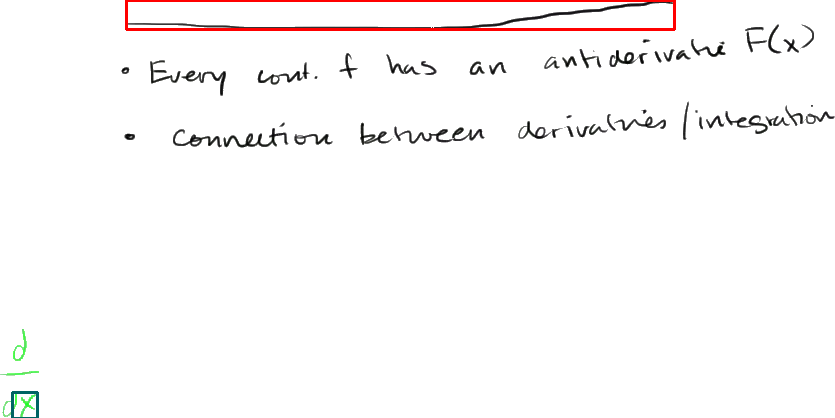 • Every cont. f has an antiderivative F(x)
• connection between derivatives/integration
d
dx